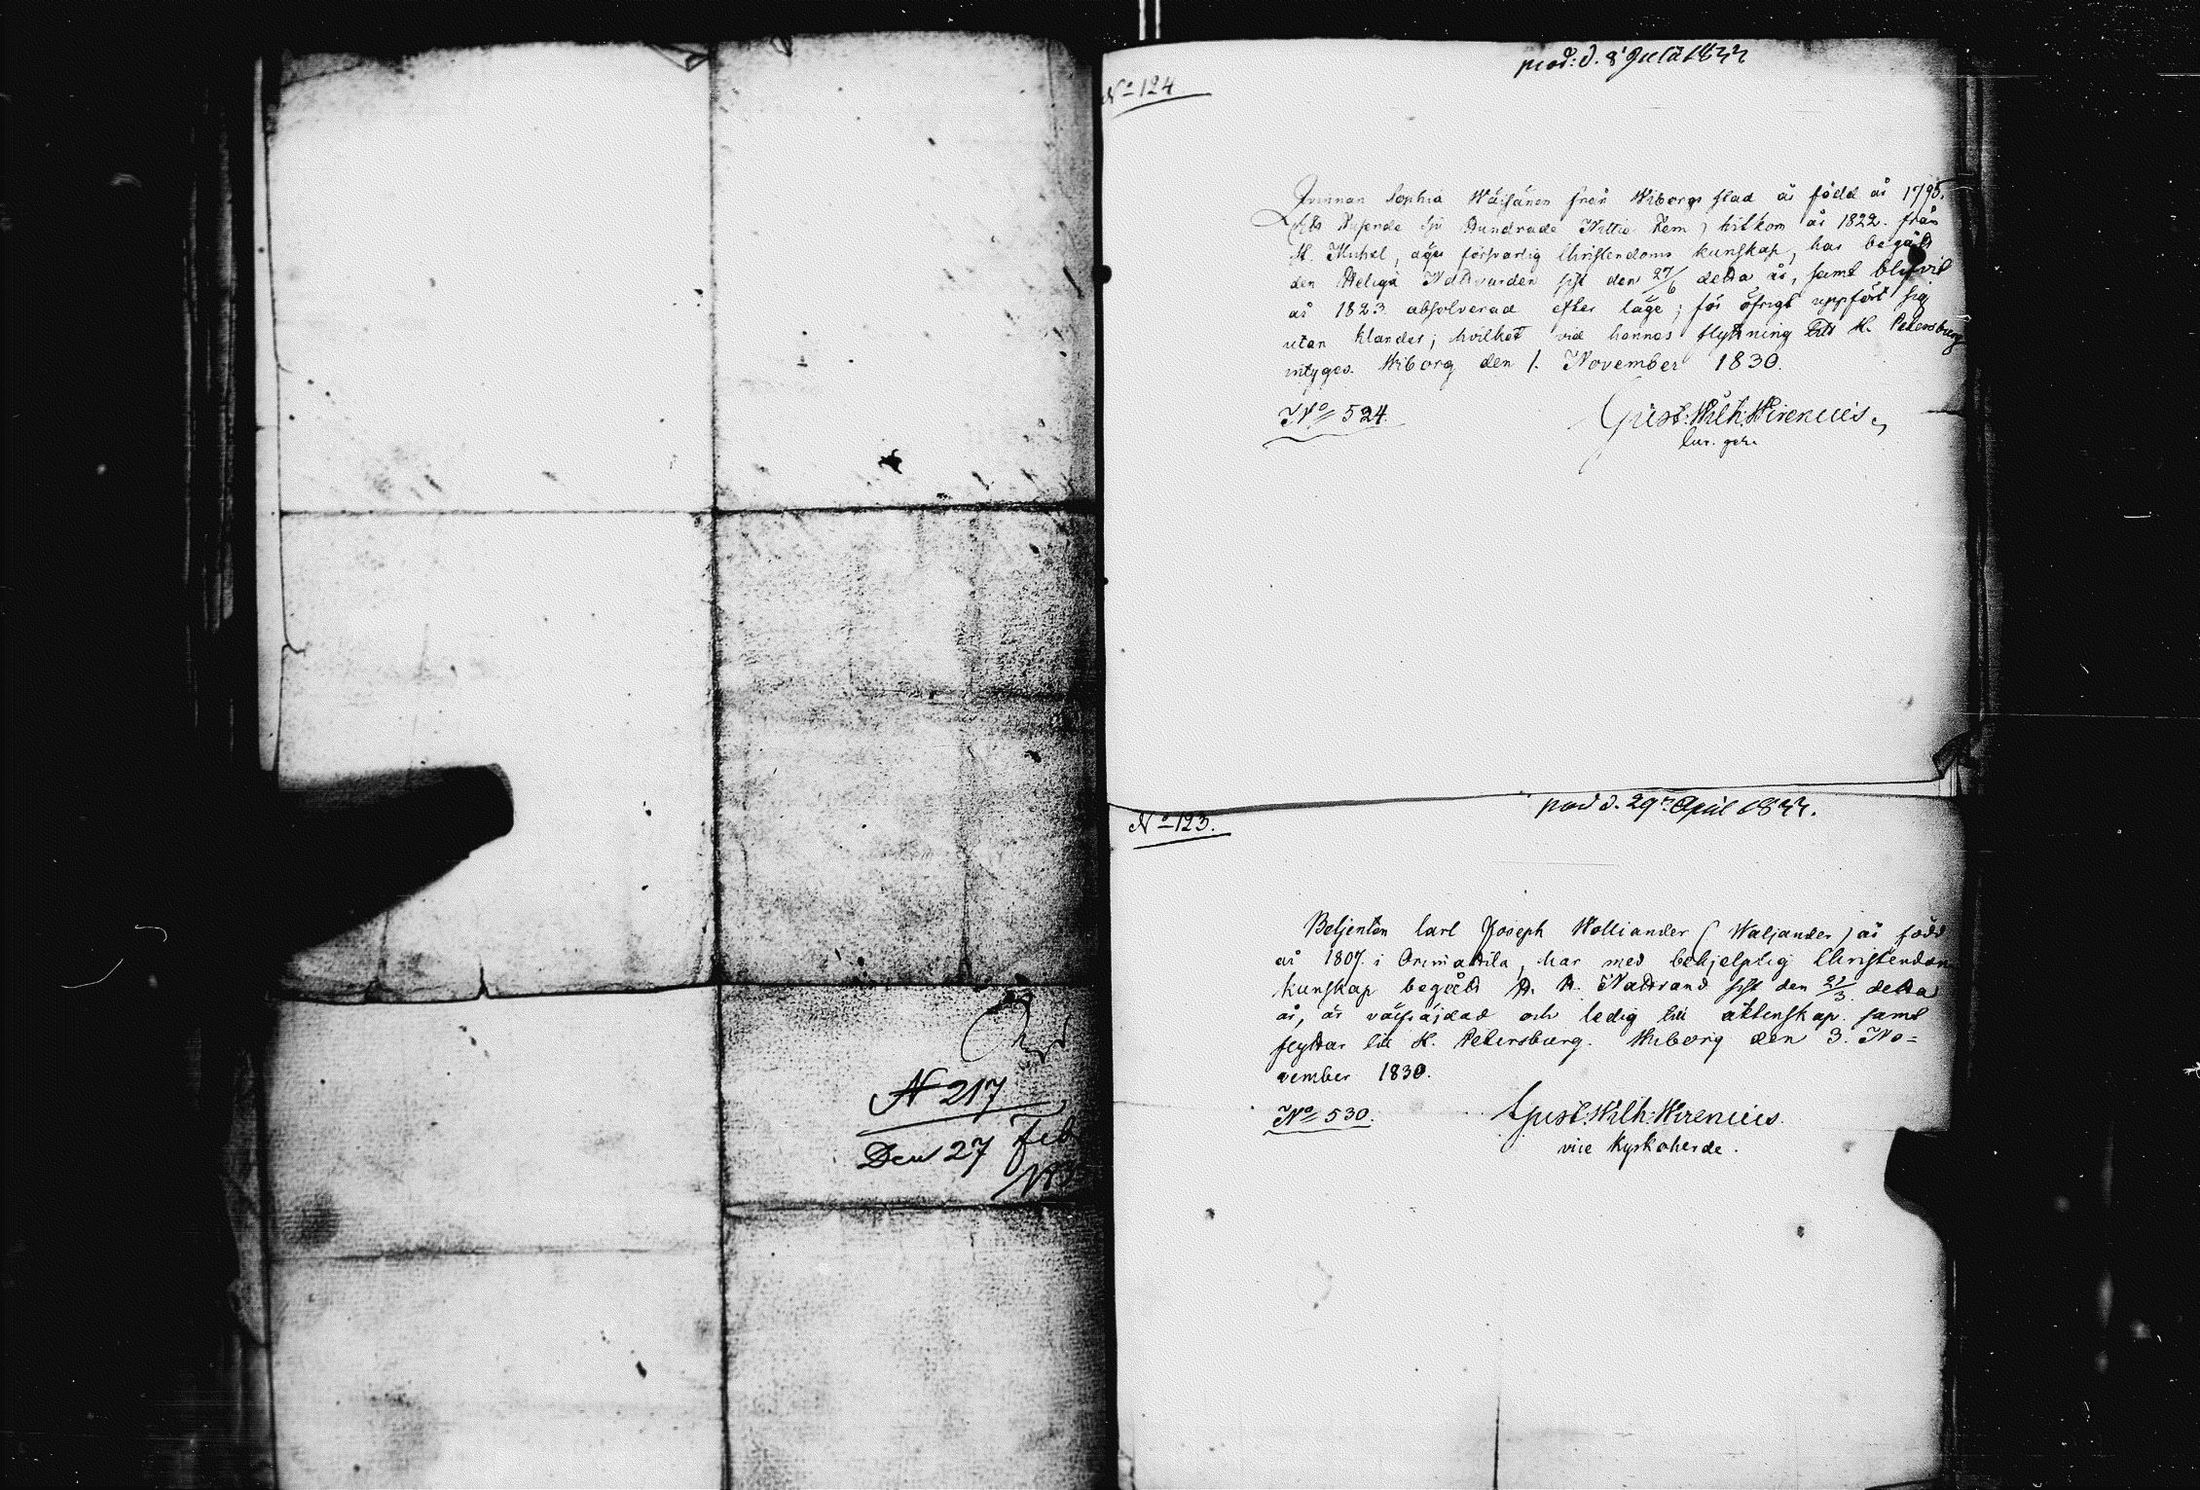 N 217
Den 27 Feb
No 124
prod: d. 8 Julii 1833
Qvinnan Sophia Wäisänen från Wiborgs stad är född år 1795.
Ett Tusende Sju Hundrade Nittio Fem) hitkom år 1822. från
St. Michel, äger försvarlig Christendoms kunskap, har begått
den Heliga Nattvarden sist den 27/6 detta år, samt blifvit
år 1823 absolverad efter läge; för öfrigt uppfört sig
utan klander; hvilket vid hennes flyttning till St. Petersburg
intyges. Wiborg den 1. November 1830.
No 524.
Gust. Wilh. Wirenius
Cur. ger.
No 123.
prod d. 29 April 1833.
Betjenten Carl Joseph Walliander (Waljander) är född
år 1807. i Orimattila, har med behjelplig Christendom
kunskap begått H. H. Nattvard sist den 21/3. detta
år, är värjäjdad och ledig till äktenskap. samt
flyttar till St. Petersburg. Wiborg den 3. No=
vember 1830.
No 530.
Gust. Wilh. Wirenius.
vice Kyrkoherde.